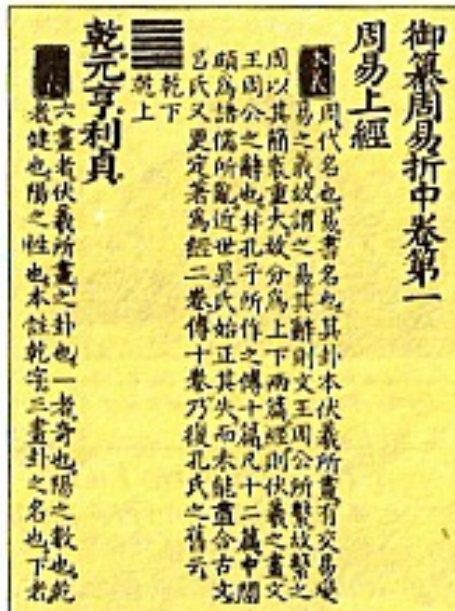 御纂周易折中卷第一
周易上經
本義
周代名也易書名也其卦本伏羲所畫有交易變
易之義故謂之易其辭則文王周公所繫故繫之
周以其簡袠重大故分為上下兩篇經則伏羲之畫文
王周公之辭也并孔子所作之傳十篇凡十二篇中間
頗為諸儒所亂近世晁氏始正其失而未能盡合古文
呂氏又更定著為經二卷傳十卷乃復孔氏之舊云
乾下
乾上
乾元亨利貞
六畫者伏羲所畫之卦也一者奇也陽之數也乾
者健也陽之性也本註乾字三畫卦之名也下者